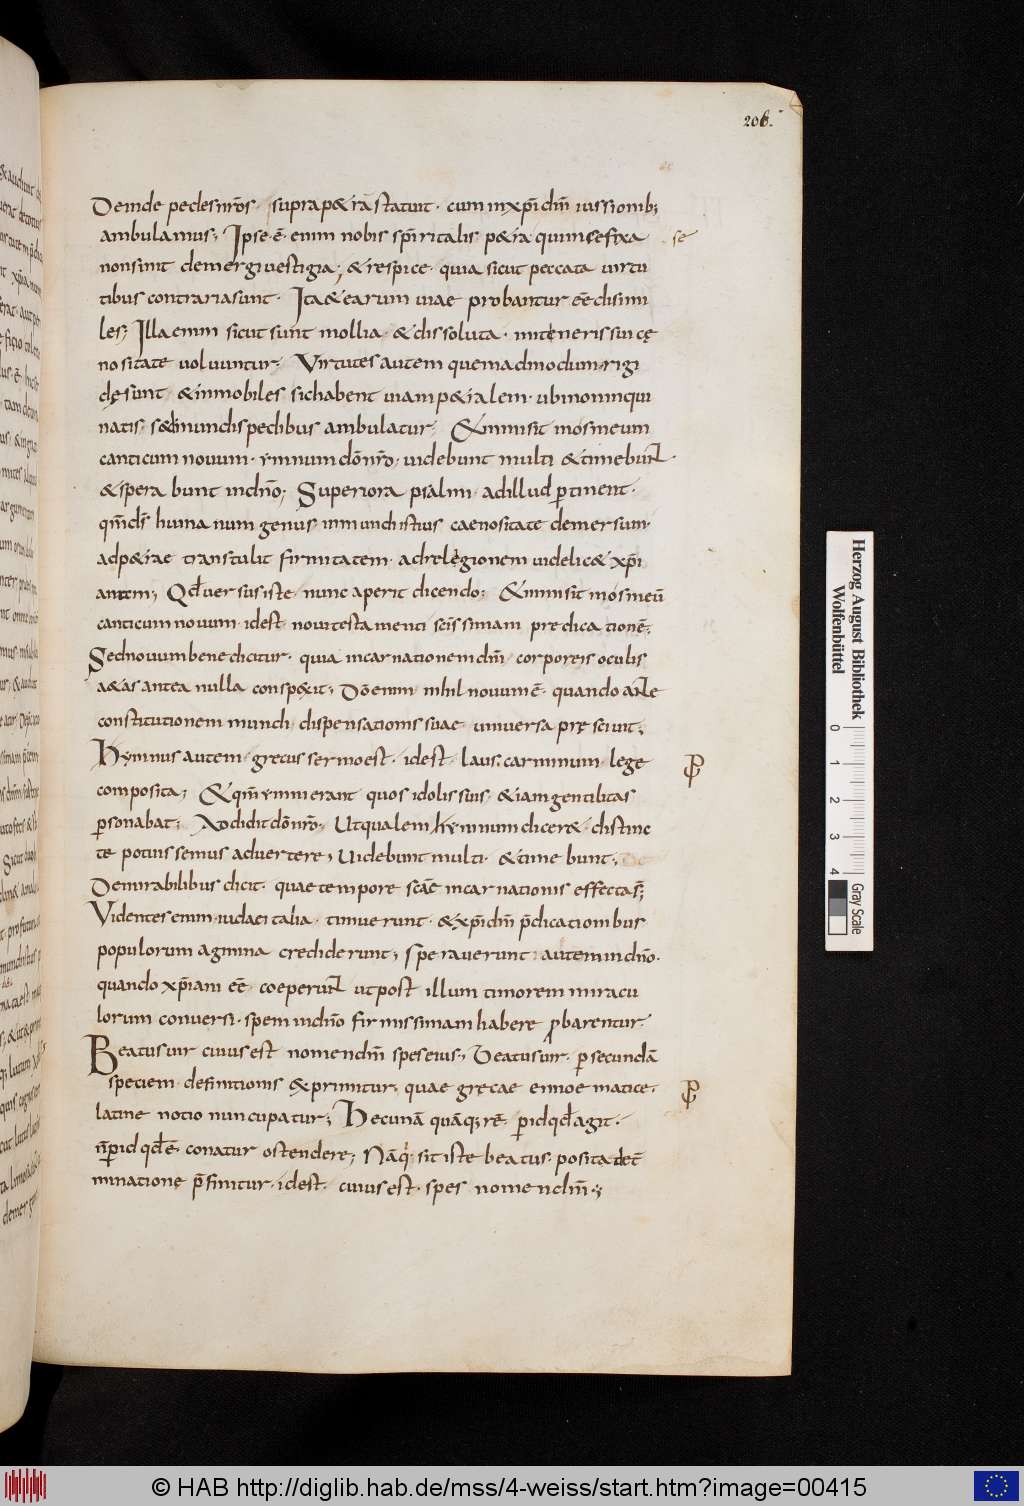 206.
Deinde pedes nr̄os suprap&rā statuit · cum in xp̄i dn̄i iussionib;
ambulamus; Ipse ē · enim nobis sp̄iritalis p&ra quiinsefixa
se
nonsinit demergi uestigia; & respice · quia sicut peccata uirtu
tibus contraria sunt · Ita & earum uiae probantur eē dissimi
les; Illa enim sicut sunt mollia · & dissoluta · in teneris sui cę
nositate uoluuntur; Virtutes autem quemadmodum rigi
dę sunt · & inmobiles sic habent uiam p&ralem · ubi non inqui
natis · sed mundis pedibus ambulatur; & inmisit in os meum
canticum nouum · ymnum dō nr̄o · uidebunt multi & timebunt ·
& spera bunt in dn̄o; Superiora psalmi · ad illud p̄tinent ·
qm̄ ds̄ huma num genus inmundi istius caenositate demersum ·
ad p&rae transtulit firmitatem · ad relegionem uidelic& xp̄i
anem; Qđ uersus iste nunc aperit dicendo; & inmisit in os meū
canticum nouum · idest · noui testamenti scīssimam predica tionē;
Sed nouum bene dicitur · quia incarnationem dn̄i corporeis oculis
a&as antea nulla conspexit; Dō enim nihil nouum ē · quando an̄te
constitutionem mundi dispensationis suae uniuersa pręsciuit;
Hymnus autem · grecus sermo est · idest · laus carminum · lege
composita; & qm̄ ymni erant quos idolis suis & iam gentilitas
p̄sonabat; Addidit dō nr̄o; Ut qualem hymnum dicer& · distinc
te potuissemus aduertere; Uidebunt multi · & time bunt;
De mirabilibus dicit · quae tempore scāe incarnationis effecta s̄;
Videntes enim iudaei talia · timue runt · & xp̄i dn̄i p̄dicationibus
populorum agmina crediderunt; Speraverunt autem in dn̄o ·
quando xp̄iani eē coeperunt ut post illum timorem miracu
lorum conuersi · spem in dn̄o firmissimam habere probarentur ·
Beatus uir cuius est nomen dn̄i spes eius; Beatus uir · p̄ secundā
speciem definitionis exprimitur · quae gręcae ennoematice ·
latine notio nuncupatur; Hec unā quāq; rē · p̄ id qđ agit ·
n̄ p̄ id qđ ē · conatur ostendere; Nāq; sit iste beatus · posita det̄
minatione p̄finitur · idest · cuius est · spes nomen dn̄i;
Herzog August Bibliothek
Wolfenbüttel
0 1 2 3 4
Gray Scale
© HAB http://diglib.hab.de/mss/4-weiss/start.htm?image=00415